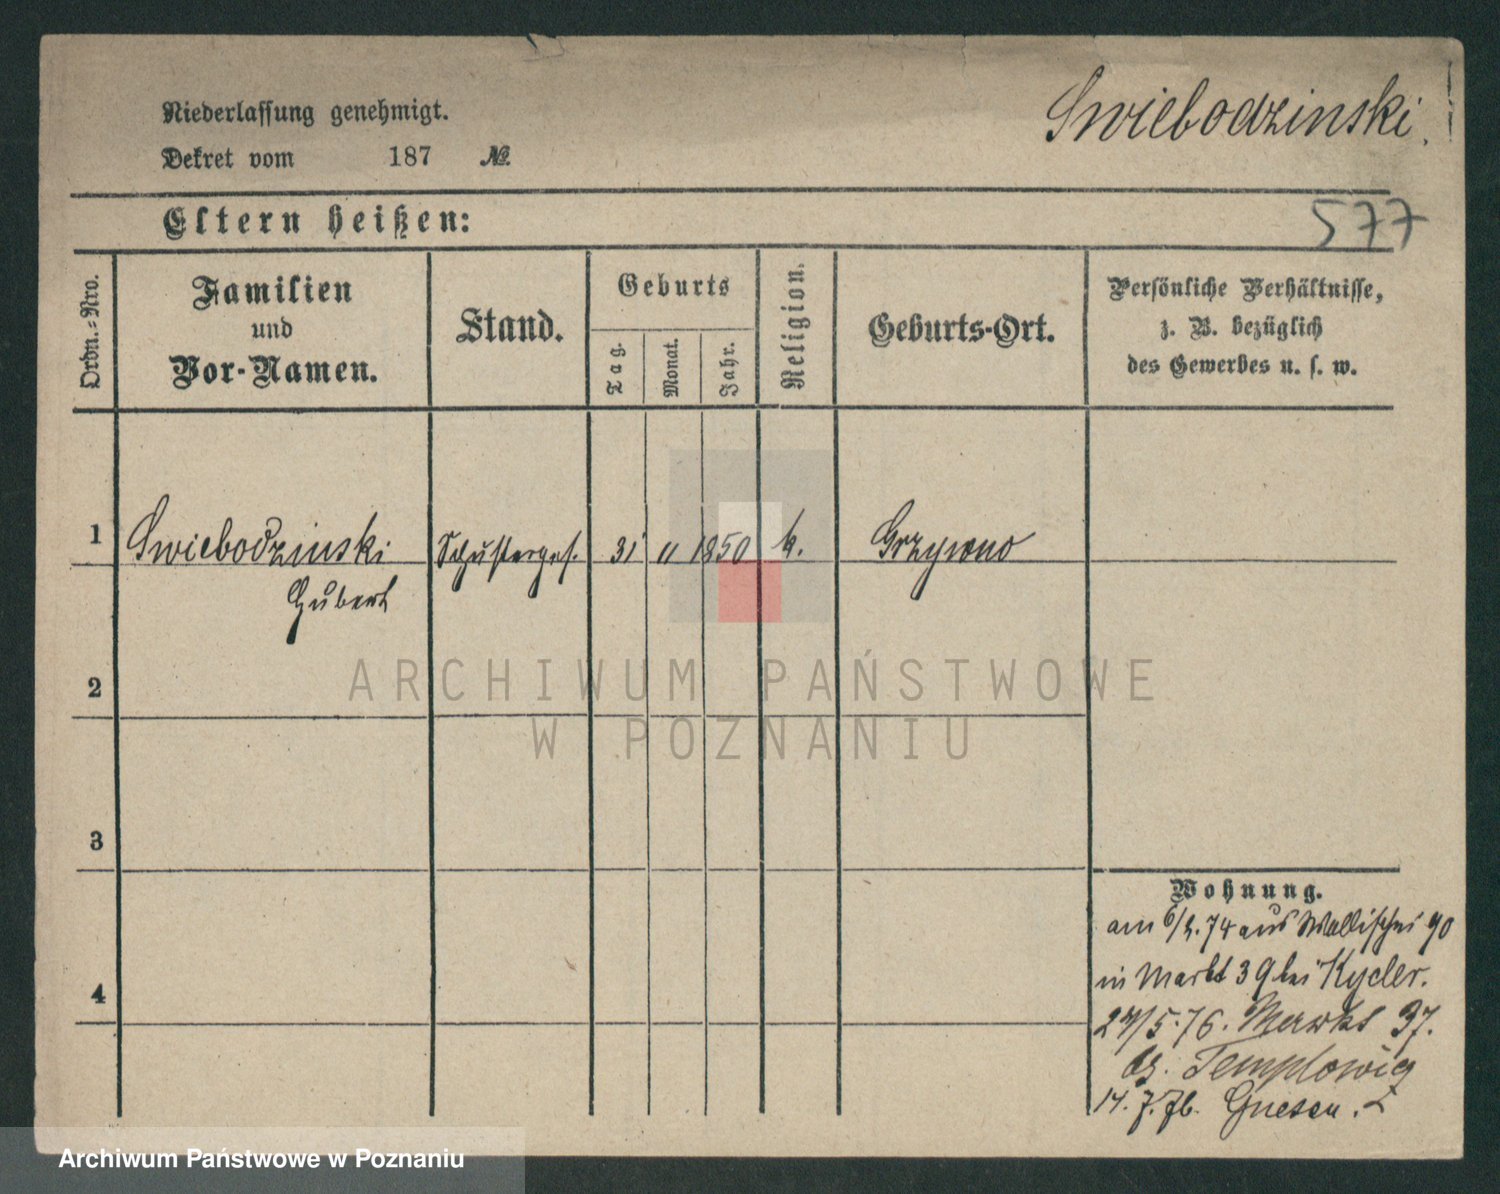 Niederlassung genehmigt.
Swiebodzinski.
Dekret vom 187 №.
Eltern heißen:
577
Ordn.-Nro.
Familien
und
Vor-Namen.
Stand.
Geburts
Tag.
Monat.
Jahr.
Religion.
Geburts-Ort.
Persönliche Verhältnisse,
z. B. bezüglich
des Gewerbes u. s. w.
1 Swiebodzinski Schusterges. 31 " 1850 k. Grzywno
Hubert
2
3
4
Wohnung.
am 6/2.74 aus Wallischei 90
in Markt 39 bei Kycler.
24/5.76. Markt 37.
Templowig
14.7.76. Gnesen.
ARCHIWUM PAŃSTWOWE
W POZNANIU
Archiwum Państwowe w Poznaniu